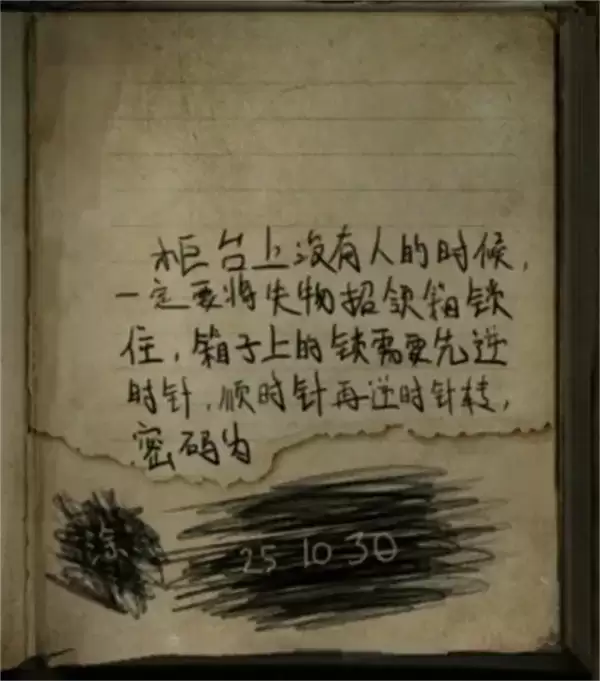 柜台上没有人的时候,
一定要将失物招领箱锁
住,箱子上的锁需要先逆
时针,顺时针再逆时针转,
密码为
涂 25 10 30